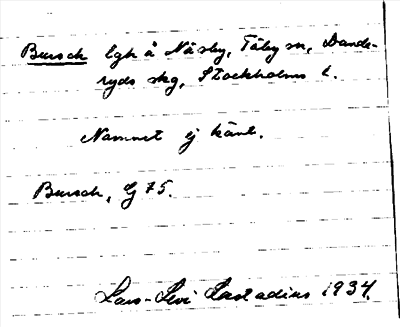 Bursch lgh å Näsby, Täby sn, Dande-
ryds skg, Stockholms l.
Namnet ej känt.
Bursch, G 75.
Lars-Levi Laestadius 1934.